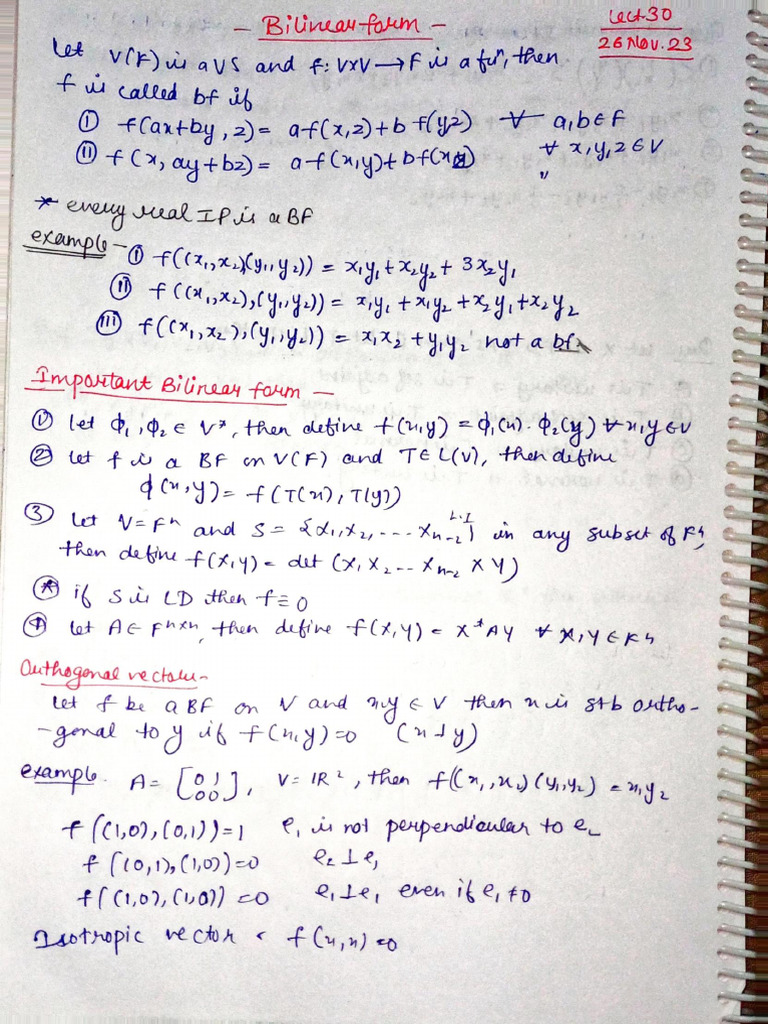 - Bilinear form -
Lect 30
26 Nov. 23
Let V(F) is a VS and f: V×V → F is a fuⁿ, then
f is called bf if
① f(ax+by, z) = af(x,z)+b f(yz) ∀ a,b∈F
② f(x, ay+bz) = af(x,y)+bf(xz) ∀ x,y,z∈V
"
* every real IP is a BF
example - ① f((x₁,x₂)(y₁,y₂)) = x₁y₁+x₂y₂+3x₂y₁
② f((x₁,x₂),(y₁,y₂)) = x₁y₁+x₁y₂+x₂y₁+x₂y₂
③ f((x₁,x₂),(y₁,y₂)) = x₁x₂+y₁y₂ not a bf.
Important Bilinear form -
① let ϕ₁,ϕ₂ ∈ V*, then define f(x,y) = ϕ₁(x)·ϕ₂(y) ∀ x,y∈V
② let f is a BF on V(F) and T∈L(V), then define
ϕ(x,y) = f(T(x),T(y))
L.I
③ let V=Fⁿ and S={x₁,x₂,...xₙ₋₂} in any subset of Fⁿ,
then define f(X,Y) = det (X₁X₂...Xₙ₋₂ X Y)
* if S is LD then f≡0
④ let A∈Fⁿˣⁿ, then define f(X,Y) = X*AY ∀ X,Y∈Fⁿ
Orthogonal vectors -
let f be a BF on V and x,y∈V then x is stb ortho-
-gonal to y if f(x,y)=0 (x⊥y)
example. A = [0 1
0 0], V=IR², then f((x₁,x₂)(y₁,y₂)) = x₁y₂
f((1,0),(0,1))=1 e₁ is not perpendicular to e₂
f((0,1),(1,0))=0 e₂⊥e₁
f((1,0),(1,0))=0 e₁⊥e₁ even if e₁≠0
Isotropic vector: f(x,x)=0